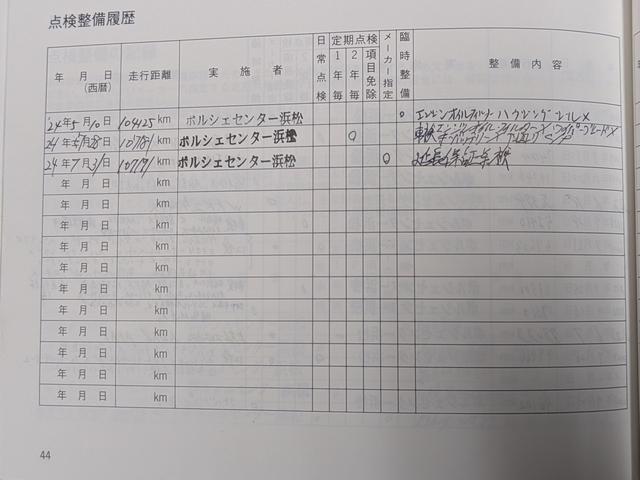 点検整備履歴
年 月 日 (西暦) 走行距離 実施者 日常点検 定期点検 1年毎 2年毎 項目免除 メーカー指定 臨時整備 整備内容
'24年5月10日 104125km ポルシェセンター浜松 エンジンオイルフィルターハウジングシール×
24年 月28日 ポルシェセンター浜松 車検
24年7月31日 km ポルシェセンター浜松 延長保証点検
年 月 日 km
年 月 日 km
年 月 日 km
年 月 日 km
年 月 日 km
年 月 日 km
年 月 日 km
年 月 日 km
年 月 日 km
年 月 日 km
年 月 日 km
44